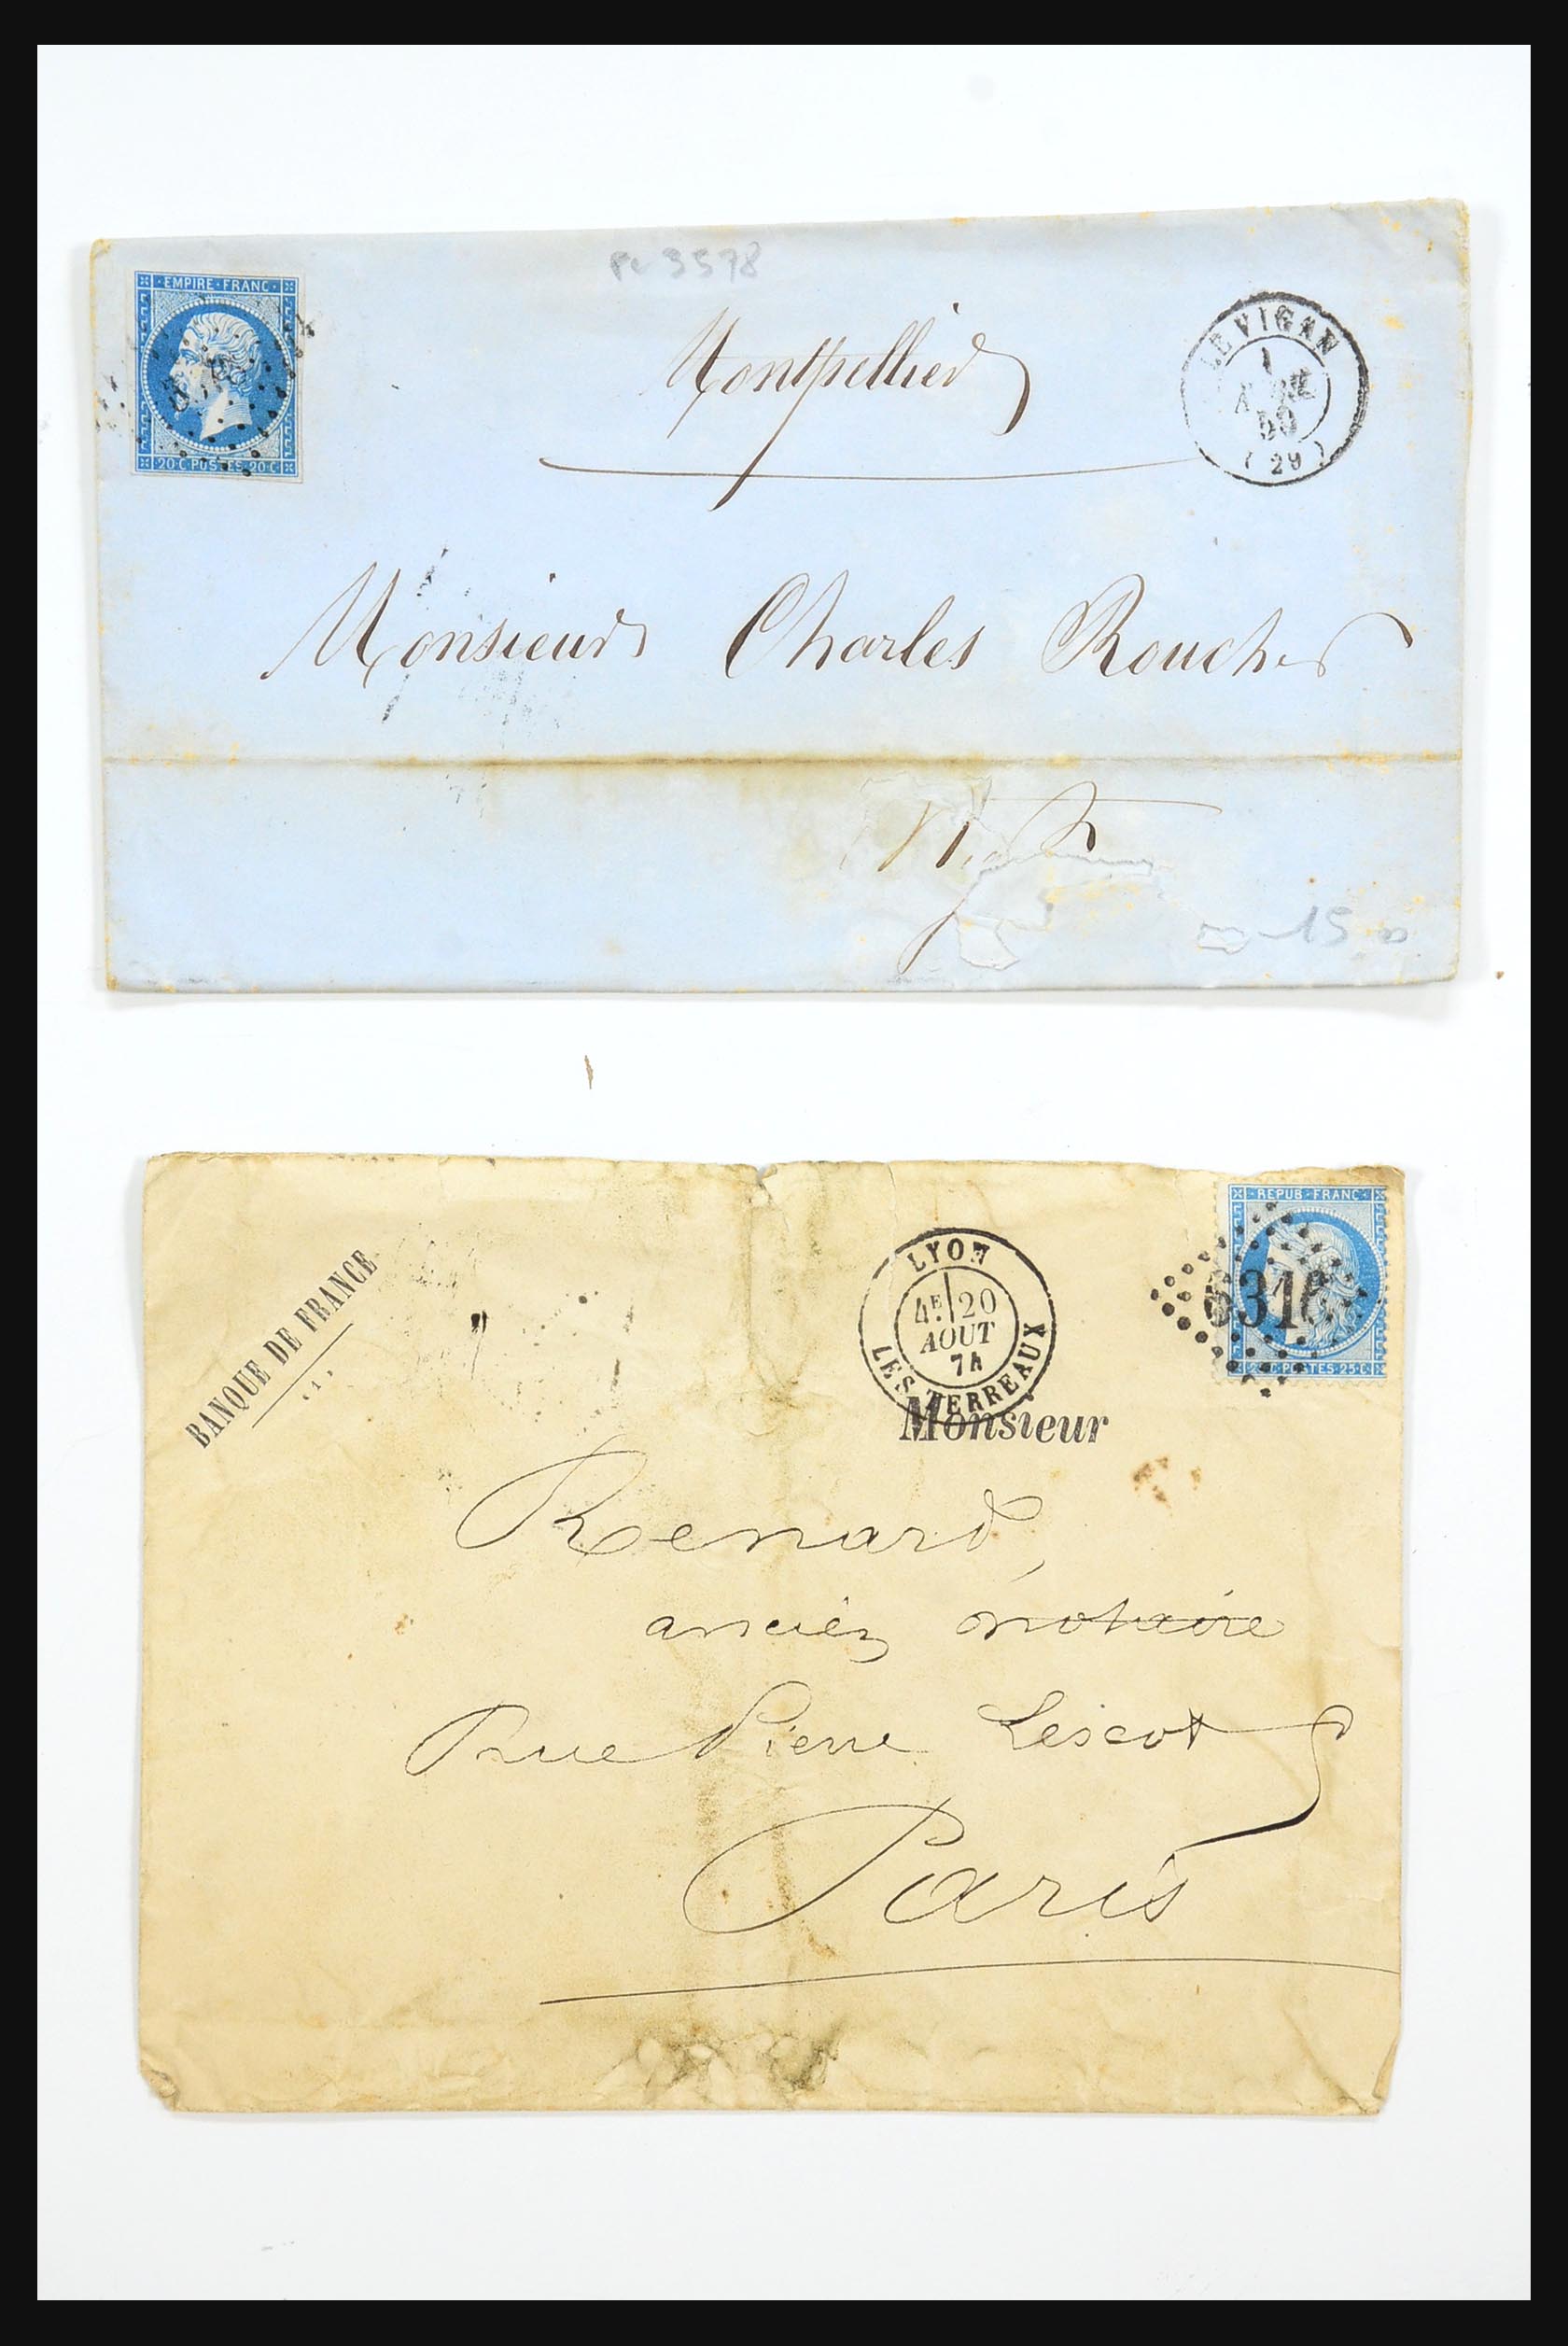 Pc 3578
EMPIRE · FRANC ·
20·C POSTES·20·C
LE VIGAN
1
(29)
Montpellier
Monsieur Charles Rouche
15
REPUB · FRANC ·
POSTES·25·C
6316
LYON
4E 20
AOUT
74
LES TERREAUX
BANQUE DE FRANCE
Monsieur
Renard,
ancien notaire
Rue Pierre Lescot
Paris